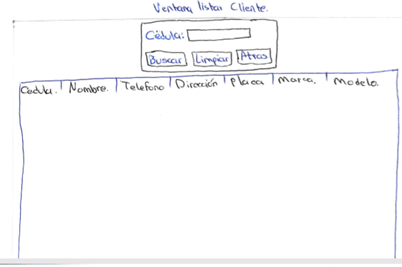 Ventana listar Cliente.
Cédula:
Buscar Limpiar Atras
Cedula. Nombre. Telefono Dirección Placa Marca. Modelo.